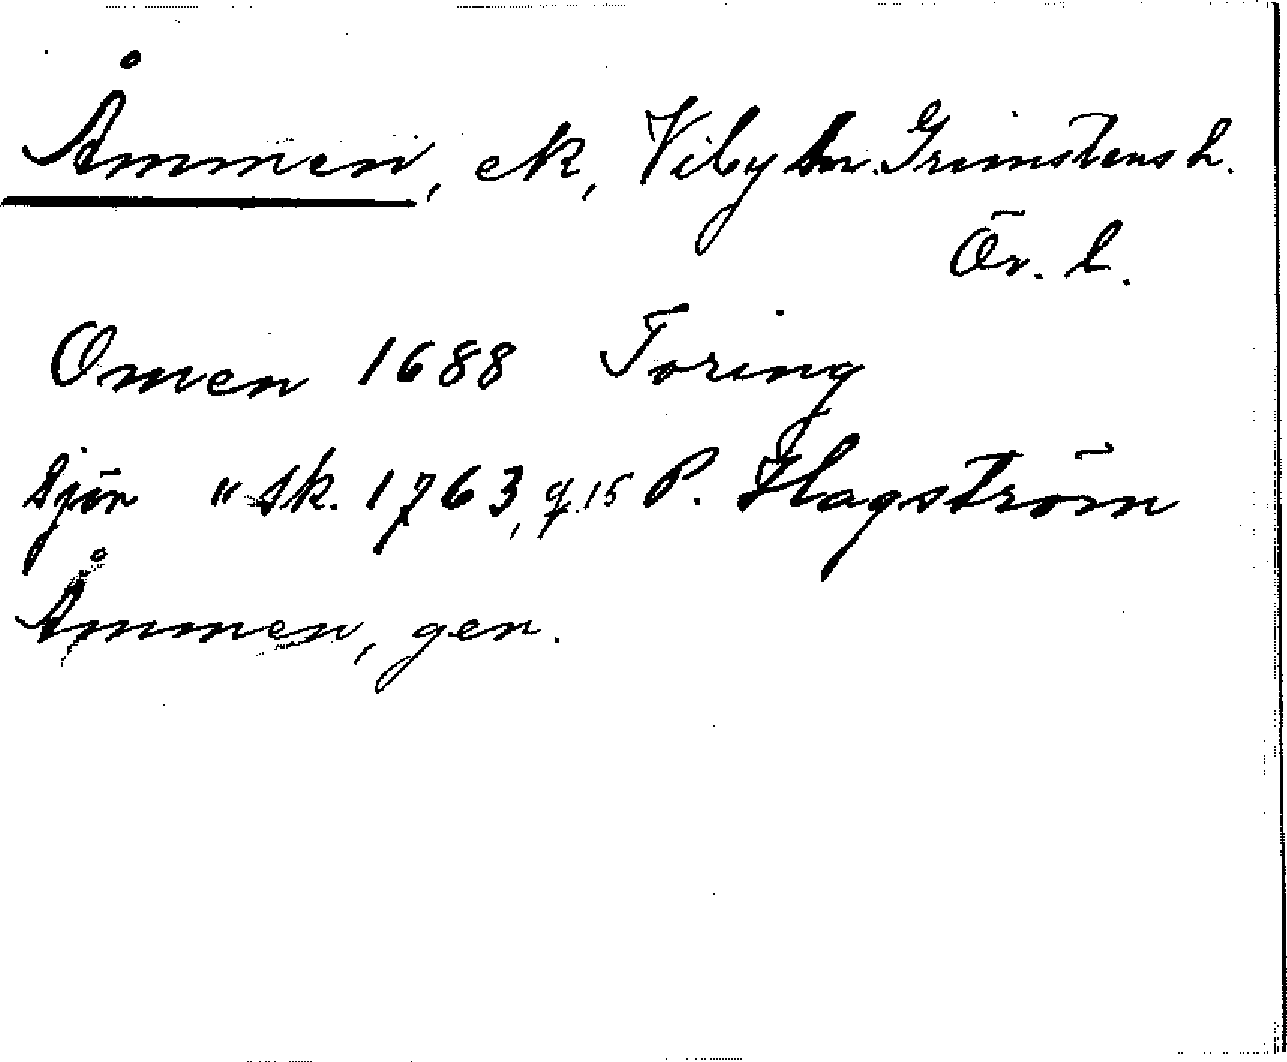 Åmmen, ek, Viby sn. Grimstens h.
Ör. l.
Omen 1688 Toring
Sjön " sk. 1763, q. 15 P. Hagström
Åmmen, gen.